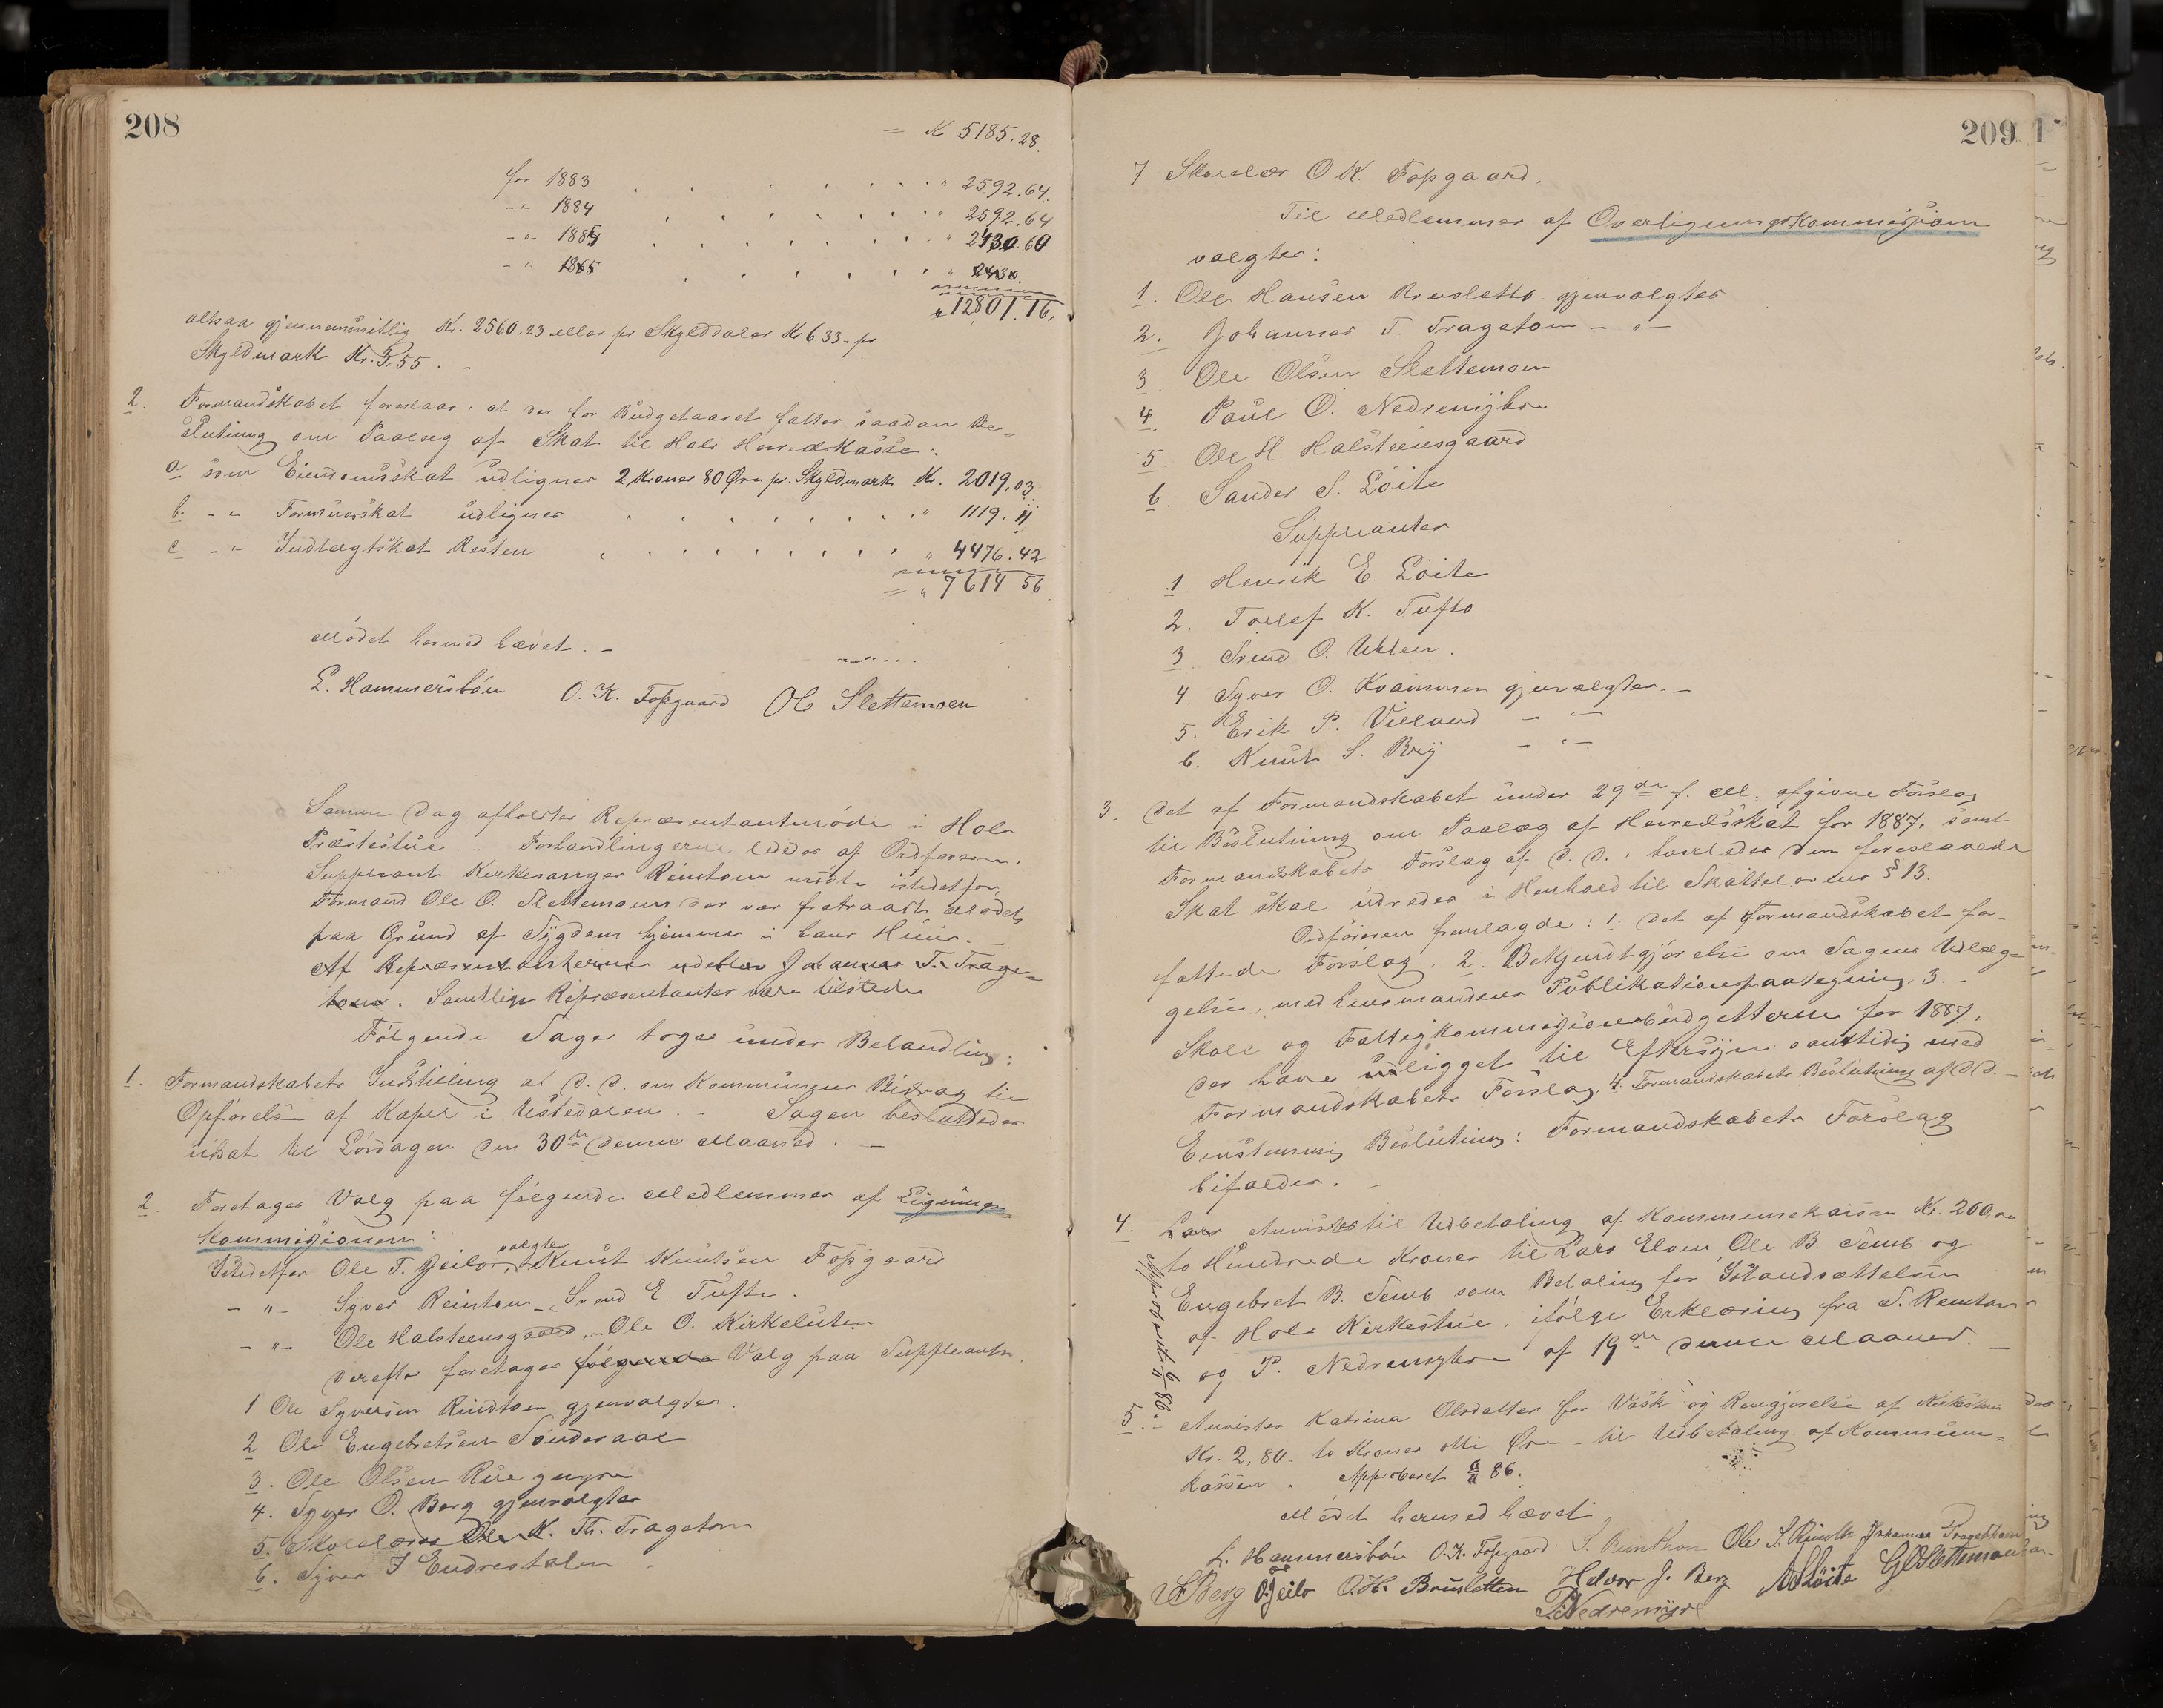 208
= Kr 5185.28.
for 1883 . . . . . . . " 2592.64.
-"- 1884 . . . . . . . " 2592.64
-"- 1885 . . . . . . . " 2430.60
-"- 1885 . . . . . . " 2430.
" 12801.16.
altsaa gjennemsnitlig Kr. 2560.23 eller pr Skylddaler Kr 6.33 - pr
Skyldmark Kr. 3,55. -
2. Formandskabet foreslaar: at der for Budgetaaret fattes saadan Be=
slutning om Paalæg af Skat til Hols Herredskasse:
a som Eiendomsskat udlignes 2 Kroner 80 Øre pr. Skyldmark Kr. 2019,03
b -"- Formuesskat udlignes . . . . . . . " 1119.11
c -"- Indtægtskat Resten . . . . . . . . " 4476.42
= " 7614 56.
Mødet hermed hævet. -
L. Hammersbøn O. K. Fopgaard Ol Slettemoen
Samme Dag afholdtes Repræsentantmøde i Hols
Præstestue. - Forhandlingerne lededes af Ordføreren.
Suppleant Kirkesanger Reintoen mødte istedetfor
Formand Ole O. Slettemoen der var fratraadt Mødet
paa Grund af Sygdom hjemme i hans Huus. -
Af Repræsentanterne udeblev Johannes T. Trage=
toen. Samtlige Repræsentanter vare tilstede
Følgende Sager toges under Behandling:
1. Formandskabets Indstilling af D. D. om Kommunens Bidrag til
Opførelse af Kapel i Ustedalen. - Sagen besluttedes
udsat til Lørdagen den 30te denne Maaned. -
2. Foretages Valg paa følgende Medlemmer af Lignings=
kommissionen:
Istedetfor Ole T. Geilo, valgtes Knut Knutsen Fopgaard
-"- Syver Reintoen - Svend E. Tufte.
-"- Ole Halsteensgaard - Ole O. Kirkeluten
Derefter foretages følgende Valg paa Suppleanter.
1 Ole Syversen Rindtoen gjenvalgtes.
2 Ole Engebretsen Sønderaal
3. Ole Olsen
4. Syver O. Berg gjenvalgtes
5. Skolelærer Ole K. Th. Tragetoen
6. Syver J Endrestølen
209
7 Skolelær O K. Fopgaard.
Til Medlemmer af Overligningskommissionen
valgtes:
1. Ole Hansen Bruslette gjenvalgtes
2. Johannes T. Tragetoen - " -
3 Ole Olsen Slettemoen
4 Paul O. Nedremyhre
5 Ole H. Halsteensgaard
6. Sander S. Løite
Suppleanter
1 Henrik E. Løite
2. Tollef K. Tufto
3 Svend O. Uhlen.
4. Syver O. Kvaimmen gjenvalgtes. -
5. Erik P. Villand - " -
6. Knut S. Bry - " -
3. Det af Formandskabet under 29de f. M. afgivne Forslag
til Beslutning om Paalæg af Herredsskat for 1887, samt
Formandskabets Forslag af D. D., hvorledes den foreslaaede
Skat skal udredes i Henhold til Skattelovens § 13.
Ordføreren fremlagde: 1. Det af Formandskabet fa-
ttede Forslag. 2. Bekjendtgjørelse om Sagens Udlæg=
gelse, med Lensmandens Publikationspaategning. 3. -
Skole og Fattigkommissionsbudgetterne for 1887,
der have udligget til Eftersyn samtidig med
Formandskabets Forslag. 4. Formandskabets Beslutning af D D. -
Eenstemmig Beslutning: Formandskabets Forslag
bifaldes. -
4. Lars Anvistes til Udbetaling af Kommunekassen Kr. 200.00
to Hundrede Kroner til Lars Elven, Ole B. Temb og
Engebret B. Temb som Betaling for Istandsættelsen
af Hols Kirkestue, ifølge Erklæring fra S. Reintoen
og P. Nedremyhre af 19de denne Maaned. -
Approberet 6/11 86.
5. - Anvistes Katrina Olsdatter for Vask og Rengjørelse af Kirkestuen
Kr. 2,80 - to Kroner otti Øre - til Udbetaling af Kommune=
kassen. Approberet 6/11 86.
Mødet hermed hævet
L. Hammersbøn O. K. Fopgaard S. Reinthon Ole S. Rinth Johannes Tragethon
Berg O. Geilo O. H. Brusletten Halvor J. Berg Løite G O Slettemoen
P Nedremyre